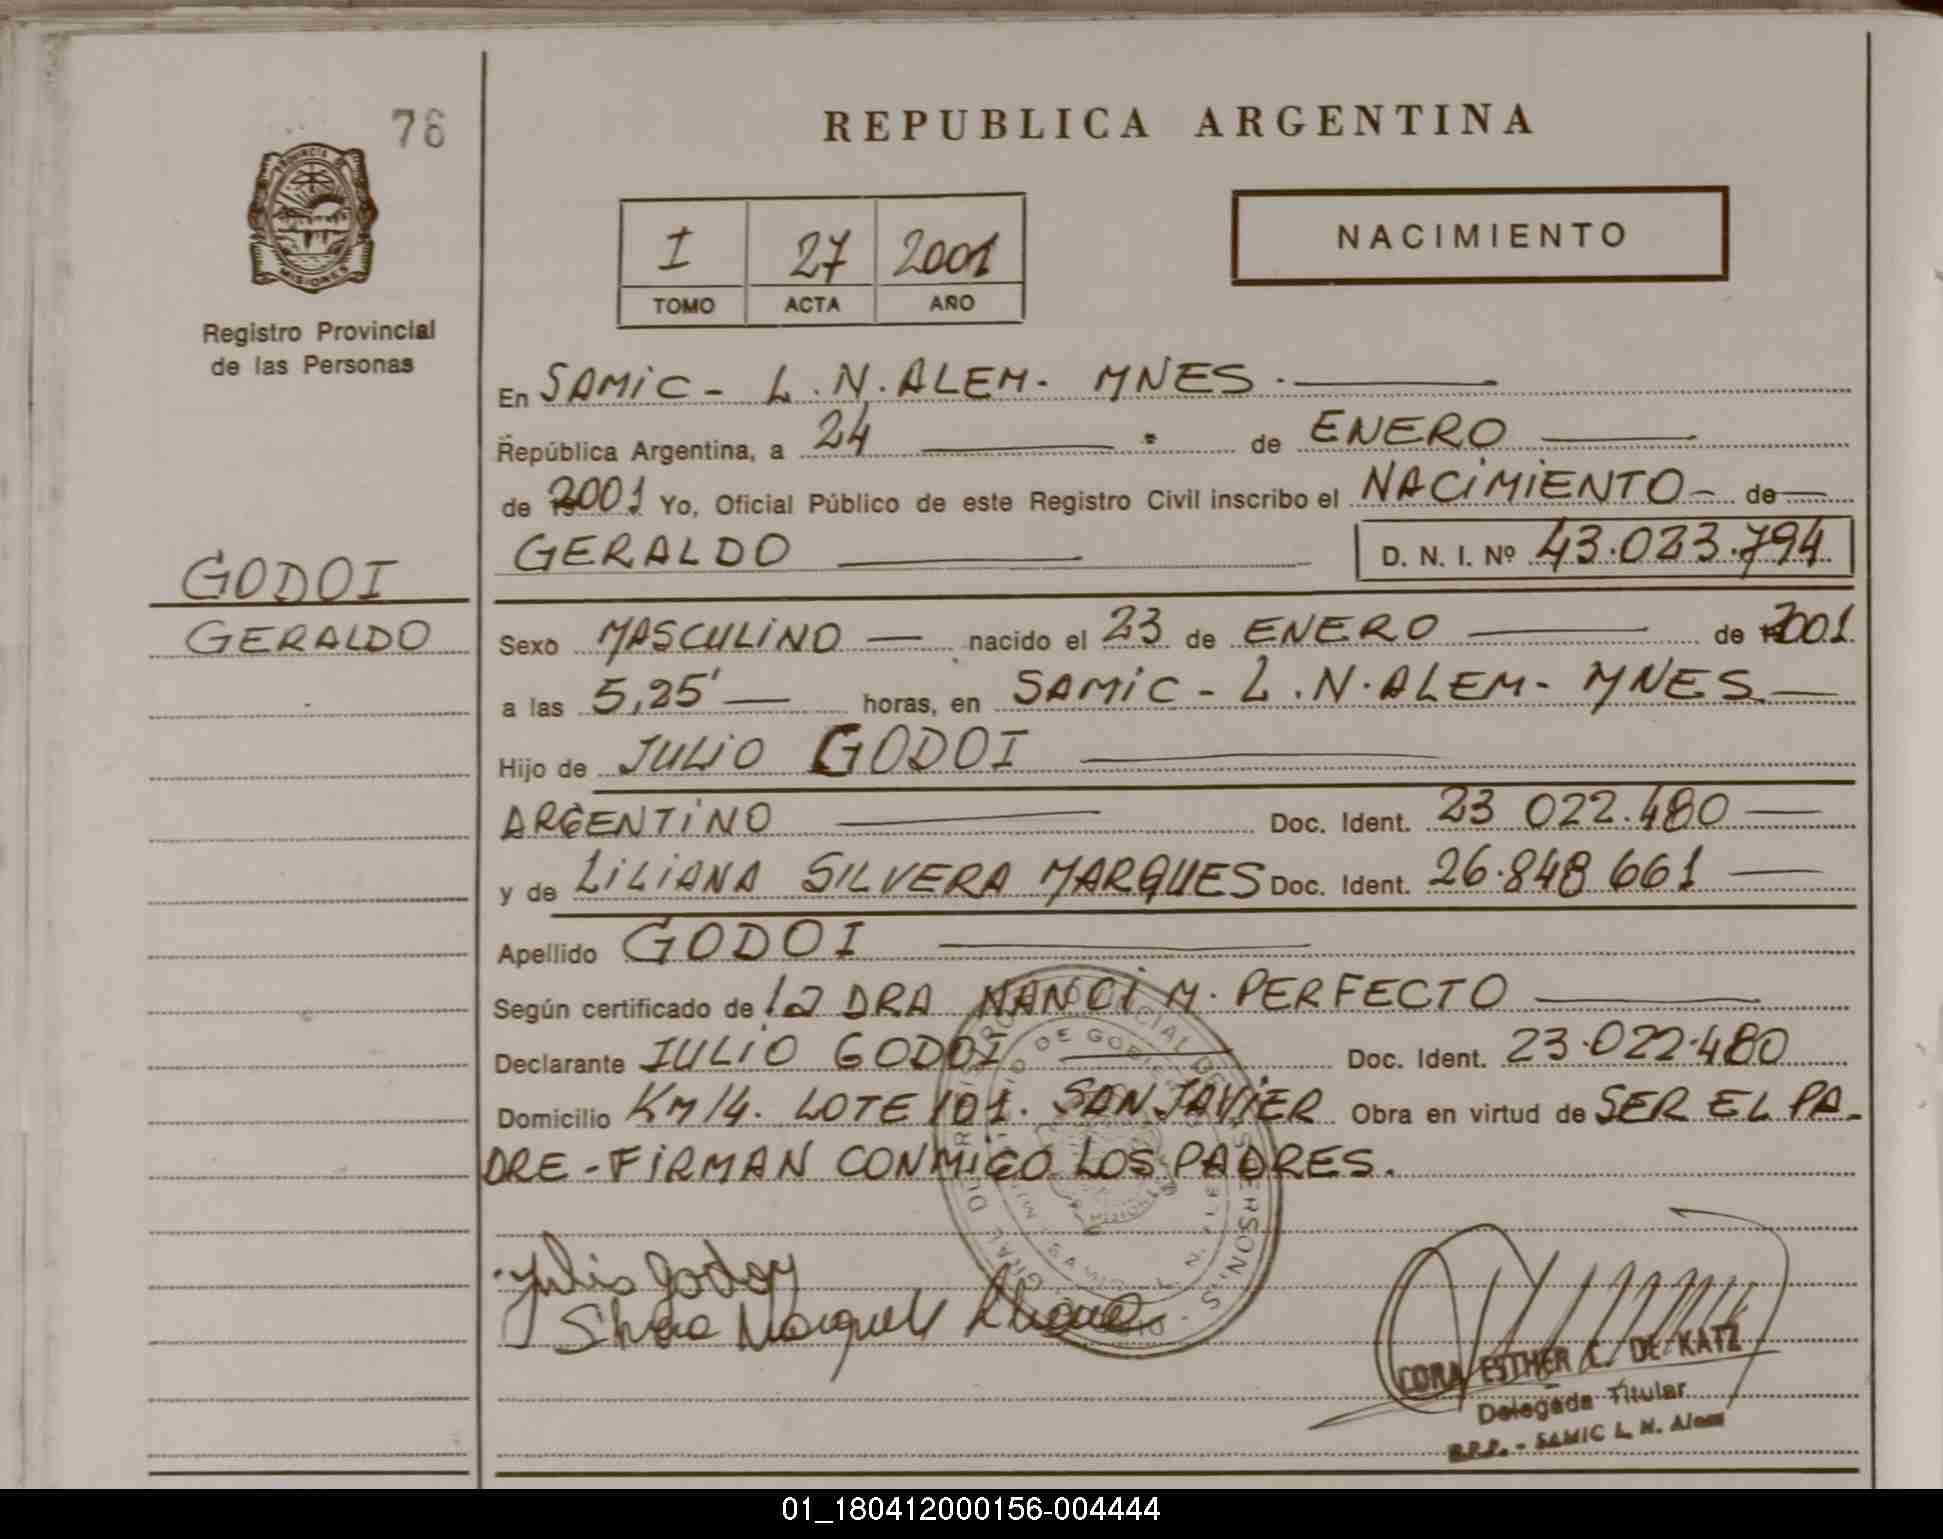 76
REPUBLICA ARGENTINA
PROVINCIA DE
MISIONES
I 27 2001
TOMO ACTA AÑO
NACIMIENTO
Registro Provincial
de las Personas
En SAMIC - L.N.ALEM. MNES.
República Argentina, a 24 de ENERO
de 2001 Yo, Oficial Público de este Registro Civil inscribo el NACIMIENTO - de
GERALDO D. N. I. Nº 43.023.794
GODOI
GERALDO
Sexo MASCULINO nacido el 23 de ENERO de 2001
a las 5,25' horas, en SAMIC - L.N.ALEM - MNES
Hijo de JULIO GODOI
ARGENTINO Doc. Ident. 23 022.480
y de LILIANA SILVERA MARQUES Doc. Ident. 26.848 661
Apellido GODOI
Según certificado de la DRA NANCI M. PERFECTO
Declarante JULIO GODOI Doc. Ident. 23.022.480
Domicilio KM 14. LOTE 101. SAN JAVIER Obra en virtud de SER EL PA-
DRE - FIRMAN CONMIGO LOS PADRES.
Julio Godoy
Silvera Marques Liliana
CORA ESTHER C. DE KATZ
Delegada Titular
R.P.P. - SAMIC L. N. Alem
01_180412000156-004444